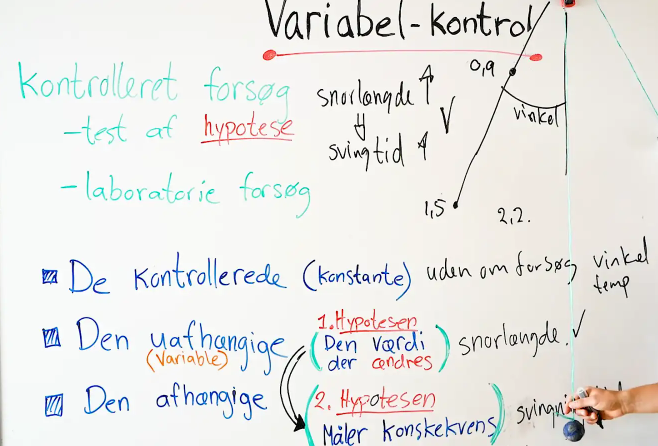 Variabel-kontrol
kontrolleret forsøg
-test af hypotese
-laboratorie forsøg
snorlængde ↑
⇓
svingtid ↑
✓
0,9
vinkel
1,5
2,2.
De kontrollerede (konstante) uden om forsøg vinkel
temp
Den uafhængige (variable)
1. Hypotesen
(Den værdi
der ændres)
snorlængde. ✓
Den afhængige
2. Hypotesen
(Måler konskekvens)